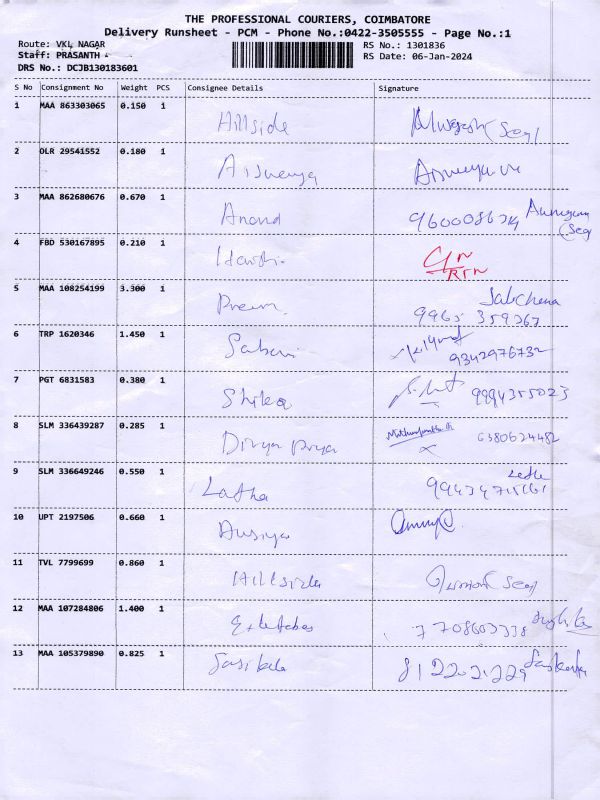 THE PROFESSIONAL COURIERS, COIMBATORE
Delivery Runsheet - PCM - Phone No.:0422-3505555 - Page No.:1
Route: VKL NAGAR RS No.: 1301836
Staff: PRASANTH RS Date: 06-Jan-2024
DRS No.: DCJB130183601
S No Consignment No Weight PCS Consignee Details Signature
1 MAA 863303065 0.150 1 Hillside
2 OLR 29541552 0.180 1
3 MAA 862680676 0.670 1 Anand
4 FBD 530167895 0.210 1
5 MAA 108254199 3.300 1 Prem
9965 359267
6 TRP 1620346 1.450 1 Sabari
9342976732
7 PGT 6831583 0.380 1 9994355023
8 SLM 336439287 0.285 1 Divya Priya 6380624482
9 SLM 336649246 0.550 1 Latha
10 UPT 2197506 0.660 1
11 TVL 7799699 0.860 1 Hillside
12 MAA 107284806 1.400 1 7708603338
13 MAA 105379890 0.825 1 Sasikala